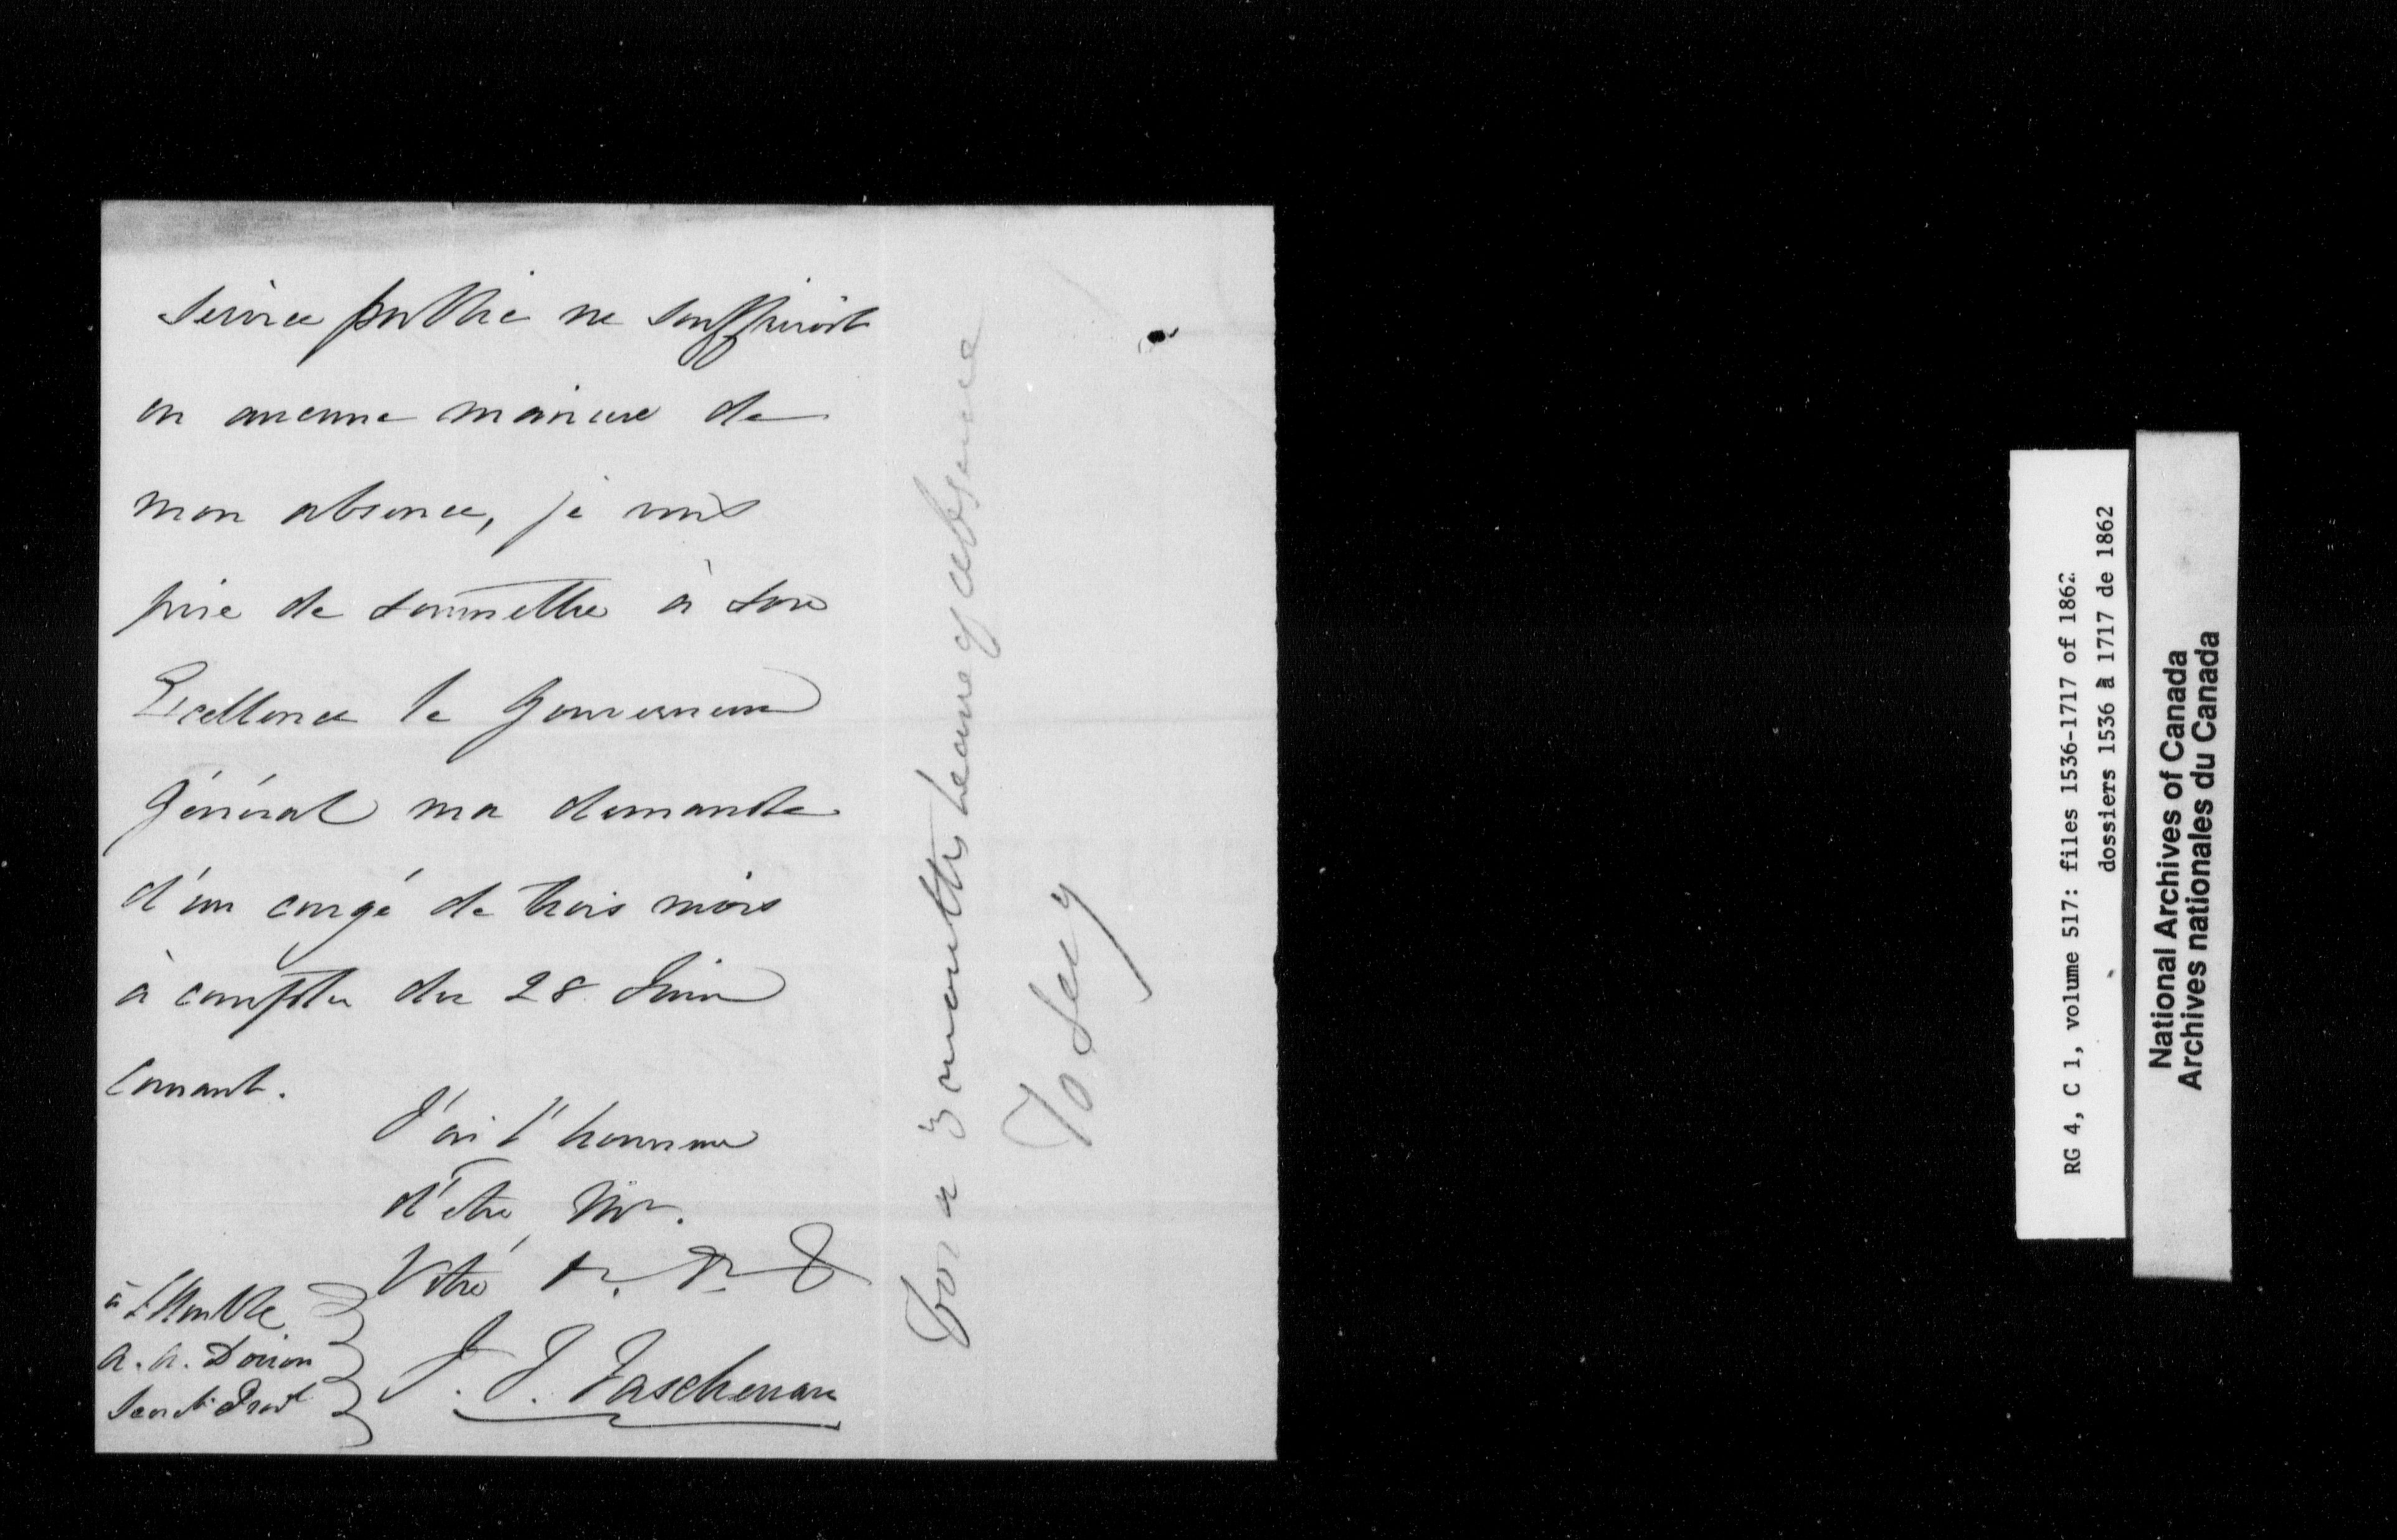 service public ne souffriroit
en aucune manière de
mon absence, je vous
prie de soumettre à Son
Excellence le Gouverneur
Général ma demande
d'un congé de trois mois
à compter du 28 Juin
Courant.
J'ai l'honneur
d'être, Mr.
Votre
J. T. Taschereau
à l'Honble
A. A. Dorion
Secret. Provl
For a 3 months leave of absence
To Secy
RG 4, C 1, volume 517: files 1536-1717 of 1862
dossiers 1536 à 1717 de 1862
National Archives of Canada
Archives nationales du Canada